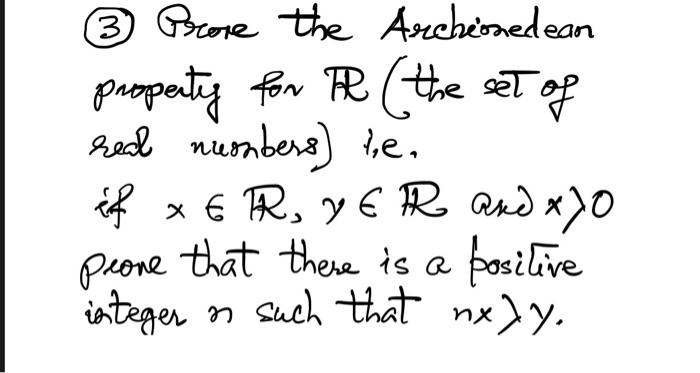 ③ Prove the Archimedean
property for ℝ (the set of
real numbers) i.e.
if x ∈ ℝ, y ∈ ℝ and x>0
prove that there is a positive
integer n such that nx>y.